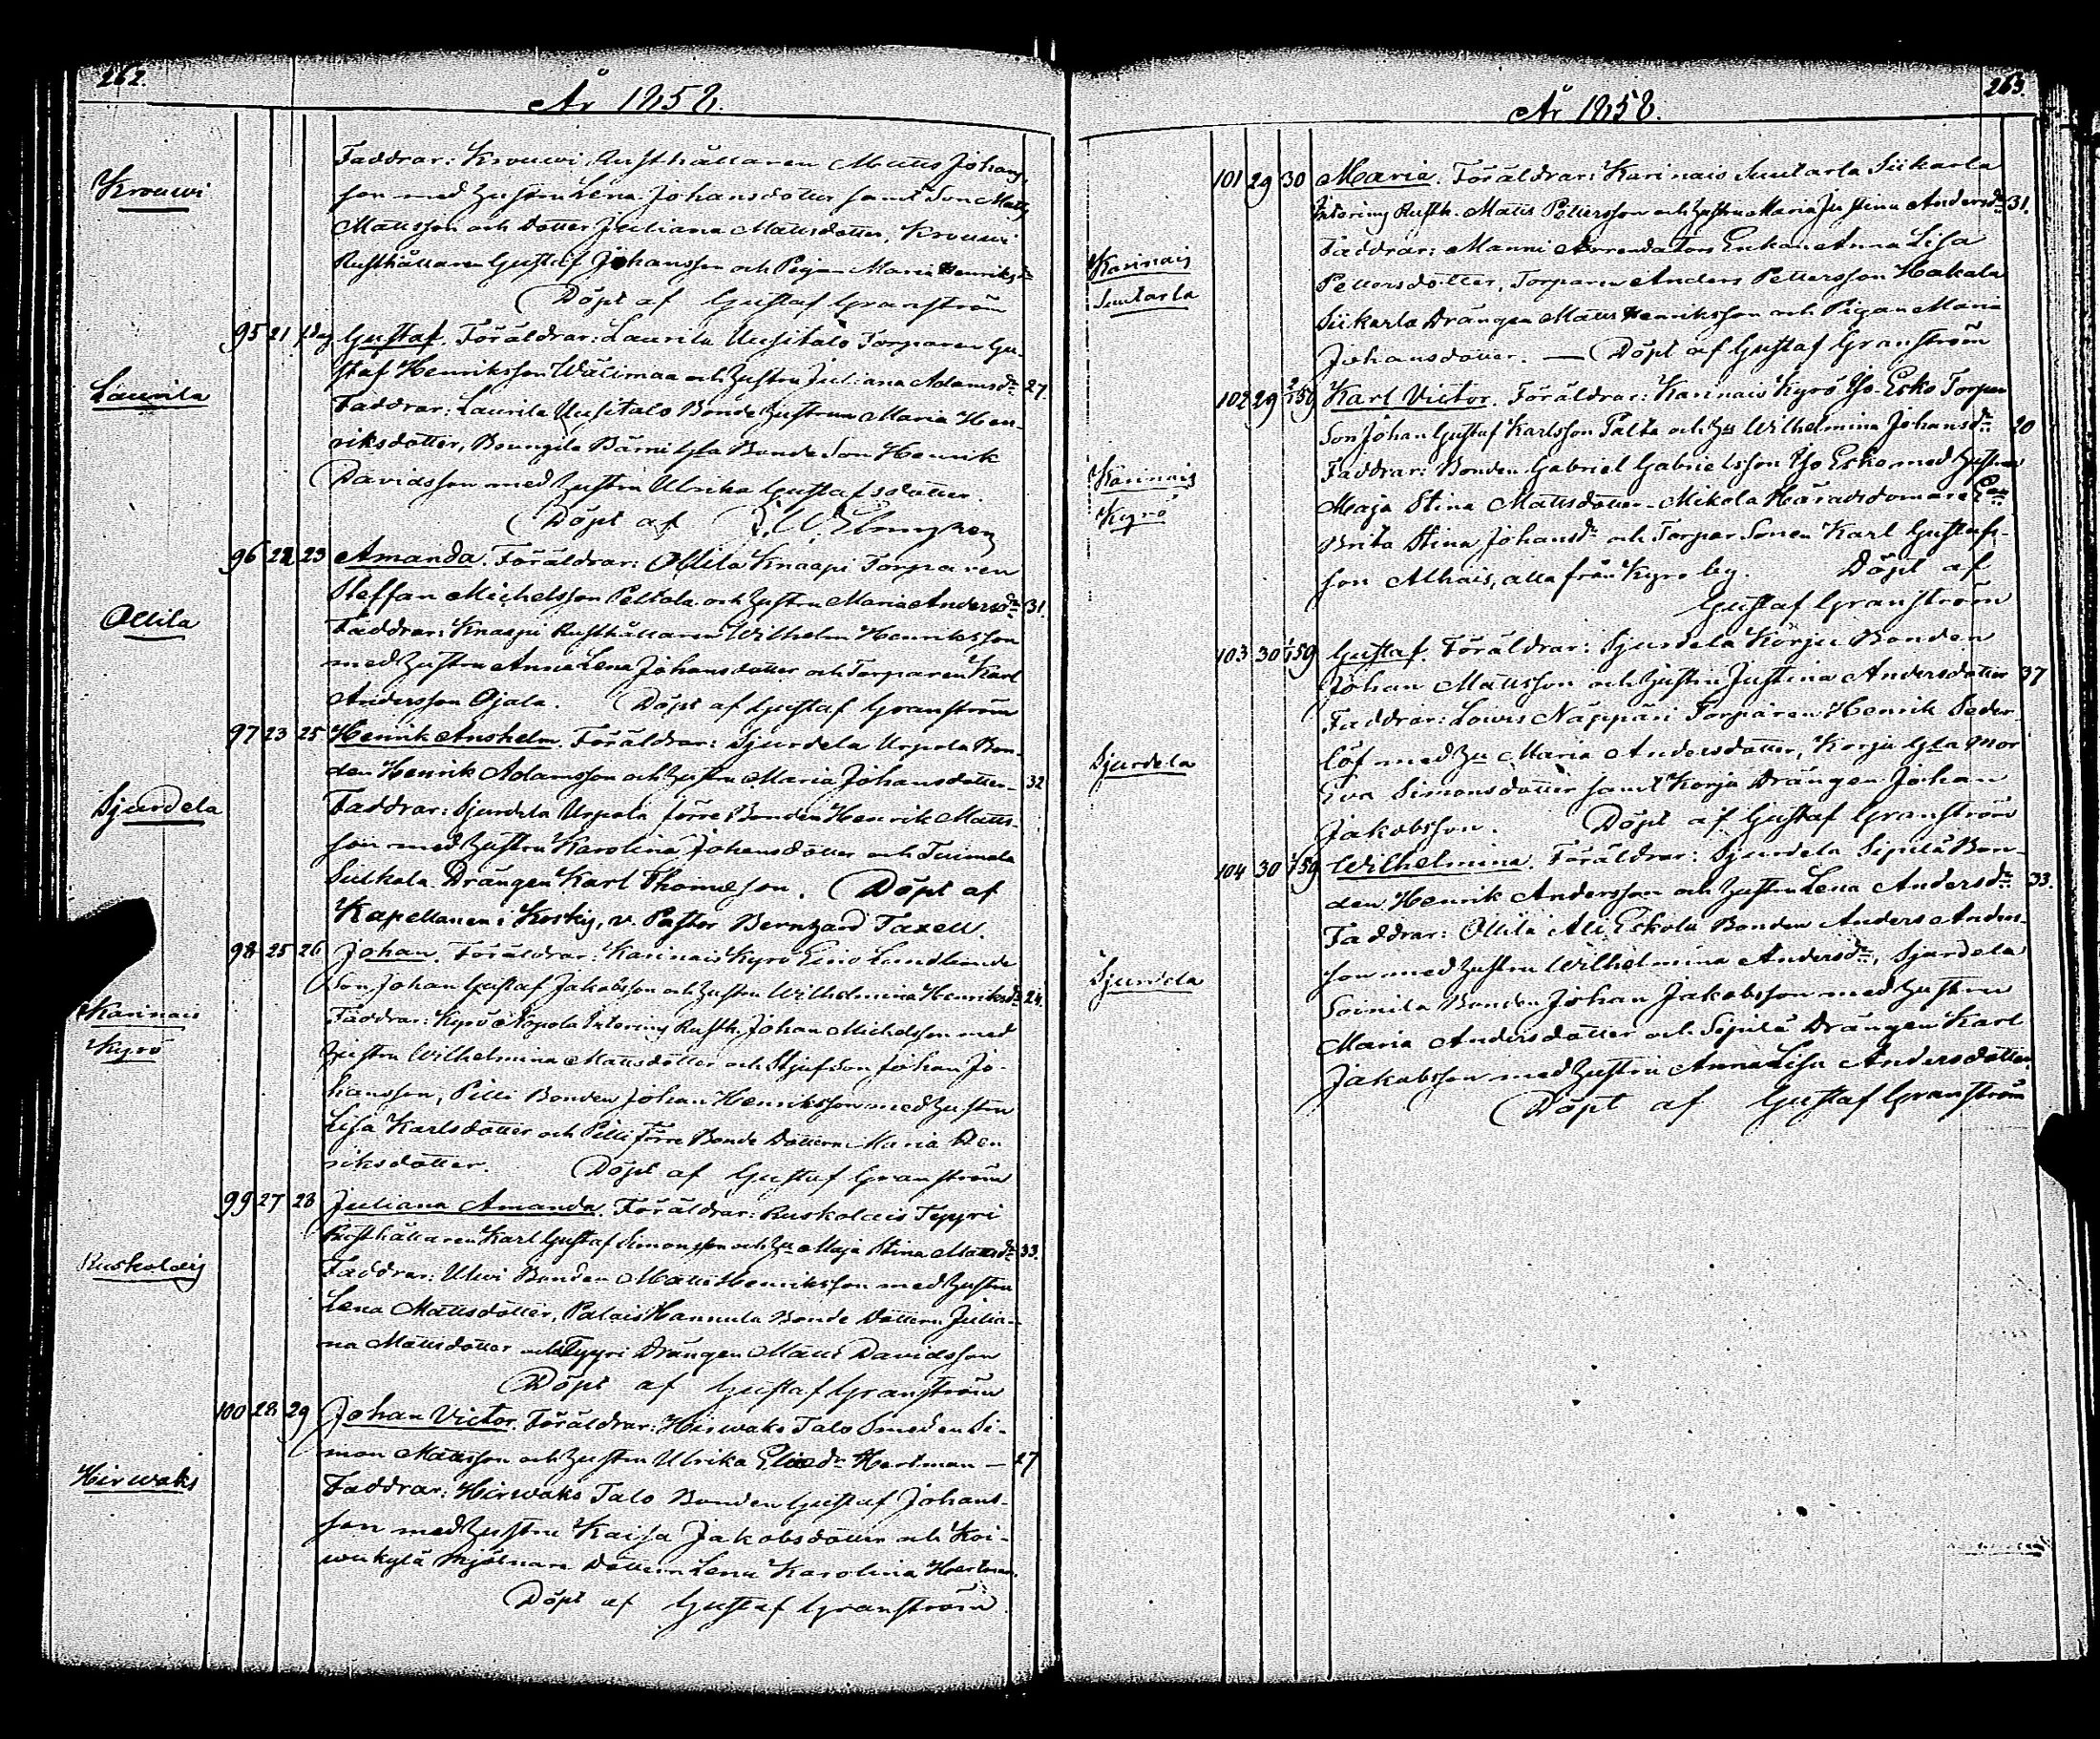 262.
År 1858.
Krouwi
Faddrar: Krouwi Rusthållaren Matts Johans,
son med hustru Lena Johansdotter samt Son Matts
Mattsson och dotter Juliana Mattsdotter, Krouwi
Rusthållaren Gustaf Johansson och Pigan Maria Henriksdr
Döpt af Gustaf Granström
Laurila
95 21 s.dag Gustaf. Föräldrar: Laurila Uusitalo Torparen Gu-
staf Henriksson Wälimaa och hustru Juliana Adamsdr 27.
Faddrar: Laurila Uusitalo Bonde hustrun Maria Hen-
riksdotter, Bonde Son Henrik
Davidsson med hustru Ulrika Gustafsdotter.
Döpt af
Ollila
96 22 23 Amanda. Föräldrar: Ollila Knaapi Torparen
Steffan Michelsson Peltola och hustru Maria Andersdr 31.
Faddrar: Knaapi Rusthållaren Wilhelm Henriksson
med hustru Anna Lena Johansdotter och Torparen Karl
Andersson Ojala. Döpt af Gustaf Granström
Sjurdela
97 23 25 Henrik Anshelm. Föräldrar: Sjurdela Urpola Bon-
den Henrik Adamsson och hustru Maria Johansdotter 32
Faddrar: Sjurdela Urpola förre Bonden Henrik Matts-
son med hustru Karolina Johansdotter och Tuimala
Suikala Drängen Karl Thomasson. Döpt af
Kapellanen i Koskis, v. Pastor Bernhard Taxell.
Karinais
Kyrö
98 25 26 Johan. Föräldrar: Karinais Kyrö Eino Landbonde
Son Johan Gustaf Jakobsson och hustru Wilhelmina Henriksdr 24.
Faddrar: Kyrö Nopola Interims Rusth. Johan Michelsson med
hustru Wilhelmina Mattsdotter och Stjufson Johan Jo-
hansson, Pilli Bonden Johan Henriksson med hustru
Lisa Karlsdotter och Pilli förre Bonde dottern Maria Hen
riksdotter. Döpt af Gustaf Granström
Ruskolais
99 27 28 Juliana Amanda. Föräldrar: Ruskolais Typpri
Rusthållaren Karl Gustaf Simonsson och hu Maja Stina Mattsdr 33.
Faddrar: Bonden Matts Henriksson med hustru
Lena Mattsdotter, Palais Hannula Bonde dottern Julia-
na Mattsdotter och Drängen Matts Davidsson
Döpt af Gustaf Granström
Hirwaks
100 28 29 Johan Victor. Föräldrar: Hirwaks Talo Smeden Si-
mon Mattsson och hustru Ulrika Eliaedr Hartman — 27
Faddrar: Hirwaks Talo Bonden Gustaf Johans-
son med hustru Kaisa Jakobsdotter och Koi-
wukylä Mjölnare dottern Lena Karolina Hartman.
Döpt af Gustaf Granström.
263.
År 1858.
Karinais
Suutarla
101 29 30 Maria. Föräldrar: Karinais Suutarla Siikarla
Interims Rusth. Matts Pettersson och hustru Maria Justina Andersdr 31.
Faddrar: Manni Arrendators Enkan Anna Lisa
Pettersdotter, Torparen Anders Pettersson Hakala
Siikarla Drängen Matts Henriksson och Pigan Maria
Johansdotter. — Döpt af Gustaf Granström
Karinais
Kyrö
102 29 2/1 59 Karl Victor. Föräldrar: Karinais Kyrö Yso-Esko Torpar
Son Johan Gustaf Karlsson Palta och hu Wilhelmina Johansdr 20
Faddrar: Bonden Gabriel Gabrielsson Yso Esko med hustru
Maja Stina Mattsdotter, Mikola Häradsdomare
Brita Stina Johansdr och Torpar Sonen Karl Gustafs-
son Alhais, alla från Kyrö by. Döpt af
Gustaf Granström
Sjurdela
103 30 1/1 59 Gustaf. Föräldrar: Sjurdela Körju Bonden
Johan Mattsson och hustru Justina Andersdotter 37
Faddrar: Lowis Näppäri Torparen Henrik Seder-
löf med hu Maria Andersdotter, Korju gla mor
Eva Simonsdotter samt Korju Drängen Johan
Jakobsson. Döpt af Gustaf Granström
Sjurdela
104 30 1/1 59 Wilhelmina. Föräldrar: Sjurdela Sipilä Bon-
den Henrik Andersson och hustru Lena Andersdr 33.
Faddrar: Ollila Ali Eskola Bonden Anders Anders-
son med hustru Wilhelmina Andersdr, Sjurdela
Soinila Bonden Johan Jakobsson med hustru
Maria Andersdotter och Sipilä Drängen Karl
Jakobsson med hustru Anna Lisa Andersdotter.
Döpt af Gustaf Granström